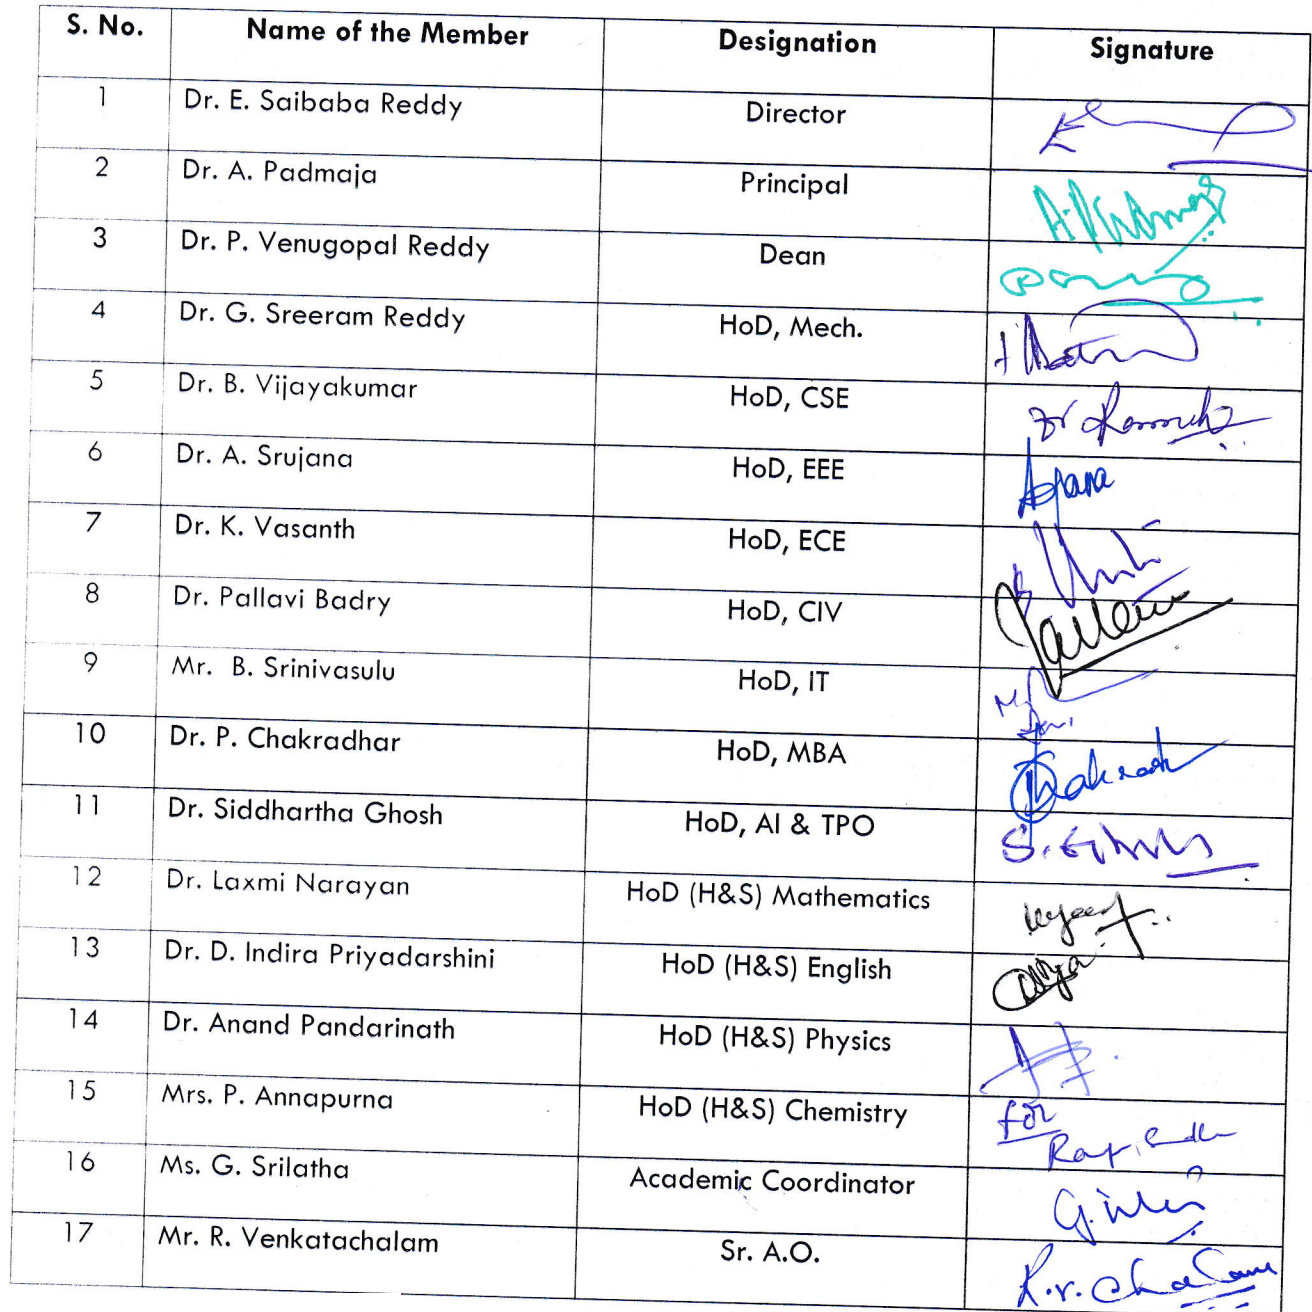 S. No. Name of the Member Designation Signature
1 Dr. E. Saibaba Reddy Director
2 Dr. A. Padmaja Principal
3 Dr. P. Venugopal Reddy Dean
4 Dr. G. Sreeram Reddy HoD, Mech.
5 Dr. B. Vijayakumar HoD, CSE
6 Dr. A. Srujana HoD, EEE
7 Dr. K. Vasanth HoD, ECE
8 Dr. Pallavi Badry HoD, CIV
9 Mr. B. Srinivasulu HoD, IT
10 Dr. P. Chakradhar HoD, MBA
11 Dr. Siddhartha Ghosh HoD, AI & TPO S. Ghosh
12 Dr. Laxmi Narayan HoD (H&S) Mathematics
13 Dr. D. Indira Priyadarshini HoD (H&S) English
14 Dr. Anand Pandarinath HoD (H&S) Physics
15 Mrs. P. Annapurna HoD (H&S) Chemistry for
16 Ms. G. Srilatha Academic Coordinator
17 Mr. R. Venkatachalam Sr. A.O.